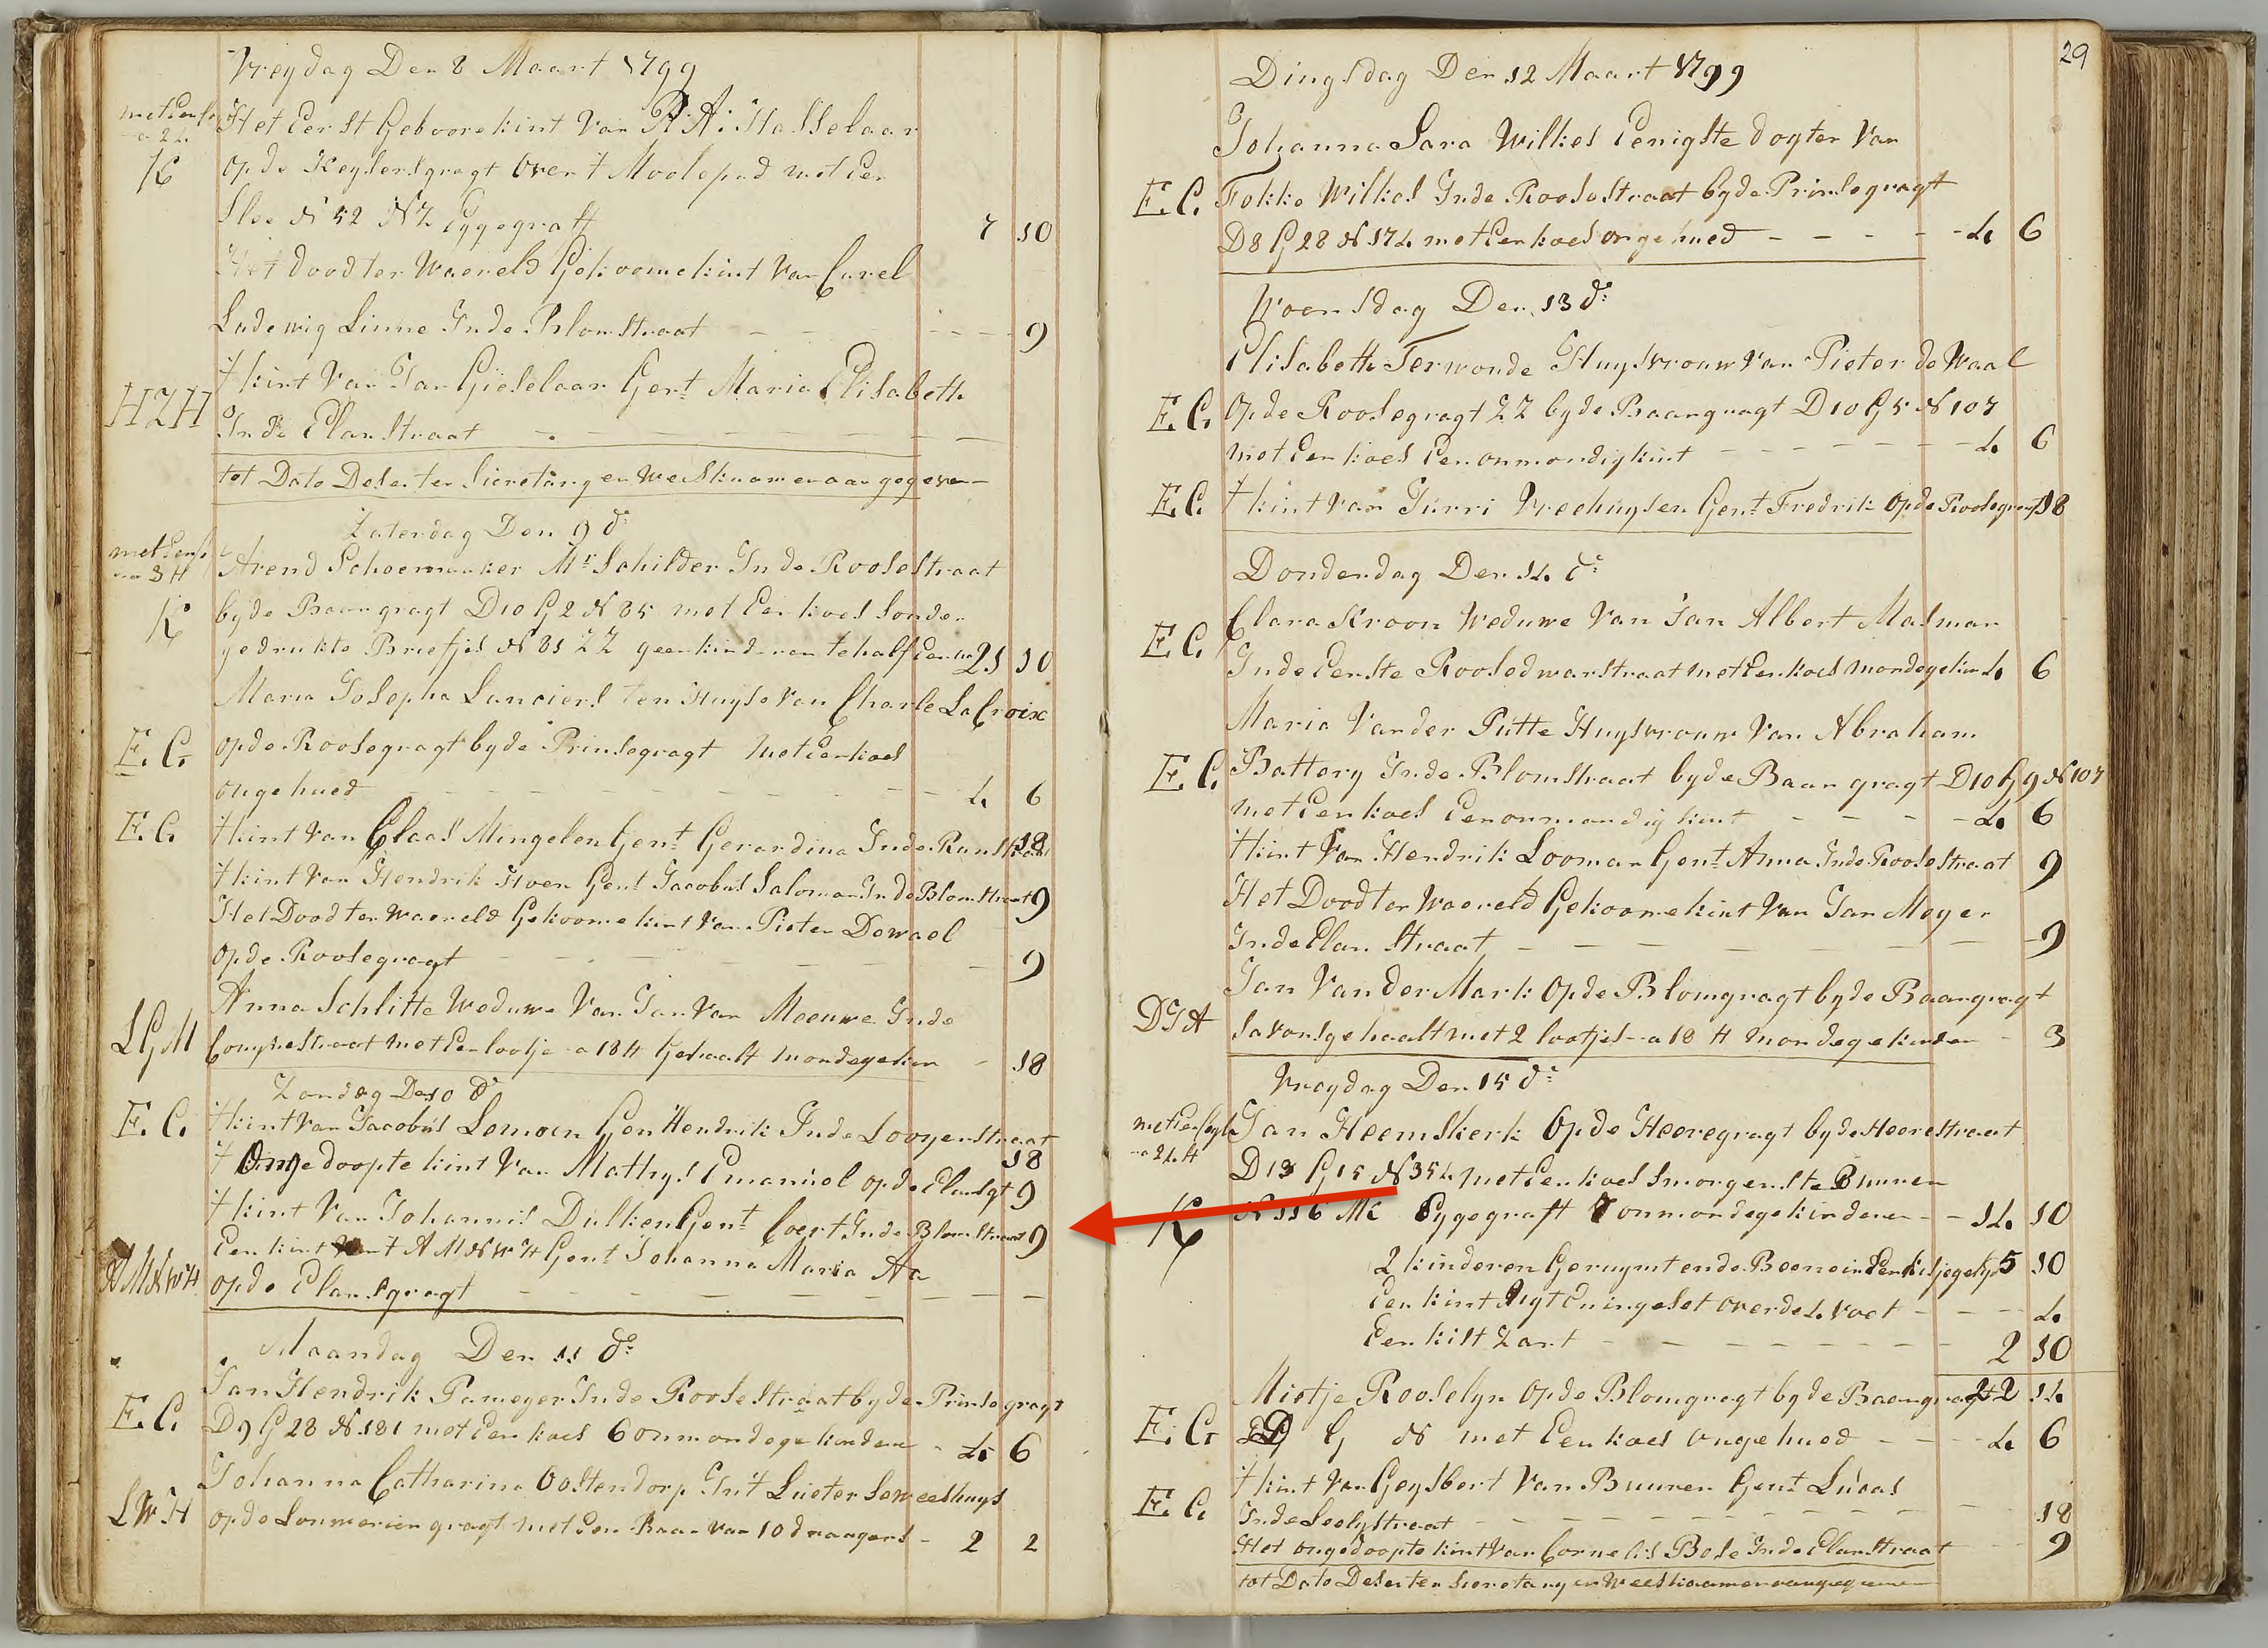 Vreydag Den 8 Maart 1799
met Een
K
Het Eerste Geboore kint Van R: A: Hasselaar
op de Keysersgragt Over t Moolepad met Een
Slee N 52 NZ Eygegraft 7 10
Het dood ter Waereld Gekoome kint Van Carel
Ludewig Linne Inde Blomstraat 9
HZH
t kint Van Jan Gieselaar Gent Maria Elisabeth
Inde Elanstraat
tot Dato Deser ter Sicretary en Weeskaamer aangegeven
Zaterdag Den 9 do
met Een
a 3 H
K
Arend Schoemaaker Mr Schilder Inde Roosestraat
byde Baangragt D10 G2 N 85 met Een koes sonder
gedrukte Briefjes N 81 ZZ geen kinderen 21 10
Maria Josepha Lanciers ten Huyse Van Charle La Croix
E. C.
op de Roosegragt byde Prinsegragt met Een koes
ongehued 4 6
E. C.
t kint Van Claas Mingelen Gent Gerardina Inde 18
t kint Van Hendrik Hoen Gent Jacobus Saloman Inde Blomstraat 9
Het Dood ter Waereld Gekoome kint Van Pieter Dewael
op de Roosegragt 9
LGM
Anna Schlitte Weduwe Van Jan Van Meeuwe Inde
met Een lootje a 18 H Gehaalt Mondege kin 18
Zondag Den 10 do
E. C.
t kint Van Jacobus Lemoen Gent Hendrik Inde Looyerstraat
18
t Ongedoopte kint Van Mathys Emanuel op de Elansgt 9
t kint Van Johannis Dulken Gent Coert Inde Blomstraat 9
AMNWH
Een kint Van t A M N W H Gent Johanna Maria Aa
op de Elansgragt
Maandag Den 11 do
Jan Hendrik Pameyer Inde Roosestraat byde Prinsegragt
E. C.
D9 G 28 N 181 met Een koes 6 onmondege kinderen 4 6
Johanna Catharina Oostendorp In't Lueterse weeshuys
LWH
op de met Een Baar van 10 draagers 2 2
29
Dingsdag Den 12 Maart 1799
Johanna Sara Wilkes Eenigste dogter Van
E. C.
Fokke Wilkes Inde Roosestraat byde Prinsegragt
D8 G 28 N 174 met Een koes ongehued 4 6
Woensdag Den 13 do
Elisabeth Terwonde Huysvrouw Van Pieter de Waal
E. C.
Op de Roosegragt ZZ byde Baangragt D10 G 5 N 107
met Een koes Een onmondig kint 4 6
E. C.
t kint Van Jurri Vreehuysen Gent Fredrik Op de Roosegragt 18
Donderdag Den 14 do
Clara Kroon Weduwe Van Jan Albert Masman
E. C.
Inde Eerste Roosedwarstraat met Een koes mondege kin 4 6
Maria Vander Putte Huysvrouw Van Abraham
E. C.
Battory Inde Blomstraat byde Baangragt D10 G 9 N 107
met Een koes Een onmondig kint 4 6
t kint Van Hendrik Looman Gent Anna Inde Roosestraat 9
Het Dood ter Waereld Gekoome kint Van Jan Meyer
Inde Elanstraat 9
Jan Vander Mark Op de Blomgragt byde Baangragt
DGA
savonsgehaalt met 2 lootjes a 18 H mondege kinderen 3
Vreydag Den 15 do
met Een
a 24 H
Jan Heemskerk Op de Heeregragt byde Heerestraat
D13 G15 N 354 met Een koes Smorgens te Buuren
K
N 116 MK Eygegraft 7 onmondege kinderen 14 10
2 kinderen Geruymt ende Beene in Een kisje gelyt 5 10
Een kint Ligt En ingeset over de 4 voet 4
Een kist Zant 2 10
22 14
Mietje Rooselyn Op de Blomgragt byde Baangragt
E. C.
D G N met Een koes ongehued 4 6
t kint Van Geysbert Van Buuren Gent Lucas
E. C.
Inde 18
Het ongedoopte kint Van Cornelis Bose Inde Elanstraat 9
tot Dato Deser ter Secretary en Weeskaamer aangegeven